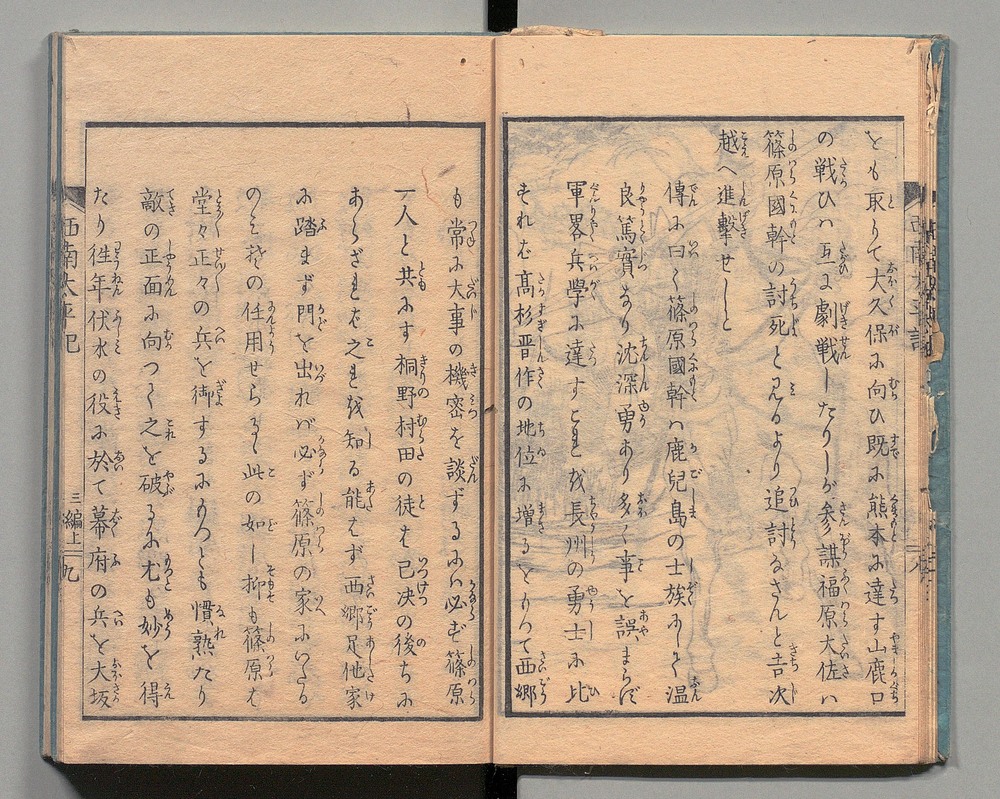 とも取りて大久保に向ひ既に熊本に達す山鹿口
の戦ひハ互に劇戦したりしが参謀福原大佐ハ
篠原國幹の討死と見るより追討なさんと吉次
越へ進撃せしと
傳に曰く篠原國幹ハ鹿兒島の士族にして温
良篤實なり沈深勇あり多く事を誤まらず
軍畧兵學に達すこれを長州の勇士に比
すれば髙杉晋作の地位に増るをもつて西郷
も常に大事の機密を談ずるにハ必ず篠原
一人と共にす桐野村田の徒は已决の後ちに
あらざれば之れを知る能はず西郷足他家
に踏まず門を出れバ必ず篠原の家にいたる
のミ其の任用せらるゝ此の如し抑も篠原は
堂々正々の兵を御するにもつとも慣熟たり
敵の正面に向つて之を破るに尤も妙を得
たり徃年伏水の役に於て幕府の兵を大坂
西南太平記
三編上
九